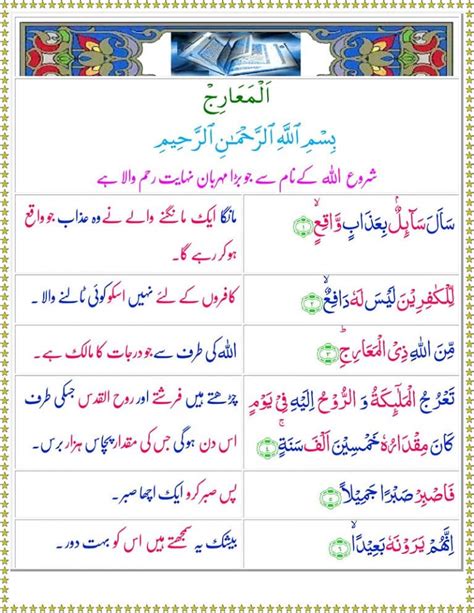 اَلْمَعَارِجْ
بِسْمِ اللّٰهِ الرَّحْمٰنِ الرَّحِيْمِ
شروع اللہ کے نام سے جو بڑا مہربان نہایت رحم والا ہے
سَاَلَ سَآىِٕلٌۢ بِعَذَابٍ وَّاقِعٍۙ ﴿۱﴾
مانگا ایک مانگنے والے نے وہ عذاب جو واقع
ہو کر رہے گا۔
لِّلْكٰفِرِيْنَ لَيْسَ لَهٗ دَافِعٌۙ ﴿۲﴾
کافروں کے لئے نہیں اسکو کوئی ٹالنے والا۔
مِّنَ اللّٰهِ ذِي الْمَعَارِجِؕ ﴿۳﴾
اللہ کی طرف سے جو درجات کا مالک ہے۔
تَعْرُجُ الْمَلٰٓىِٕكَةُ وَ الرُّوْحُ اِلَيْهِ فِيْ يَوْمٍ
كَانَ مِقْدَارُهٗ خَمْسِيْنَ اَلْفَ سَنَةٍۚ ﴿۴﴾
چڑھتے ہیں فرشتے اور روح القدس جسکی طرف
اس دن ہوگی جس کی مقدار پچاس ہزار برس۔
فَاصْبِرْ صَبْرًا جَمِيْلًا ﴿۵﴾
پس صبر کرو ایک اچھا صبر۔
اِنَّهُمْ يَرَوْنَهٗ بَعِيْدًاۙ ﴿۶﴾
بیشک یہ سمجھتے ہیں اس کو بہت دور۔